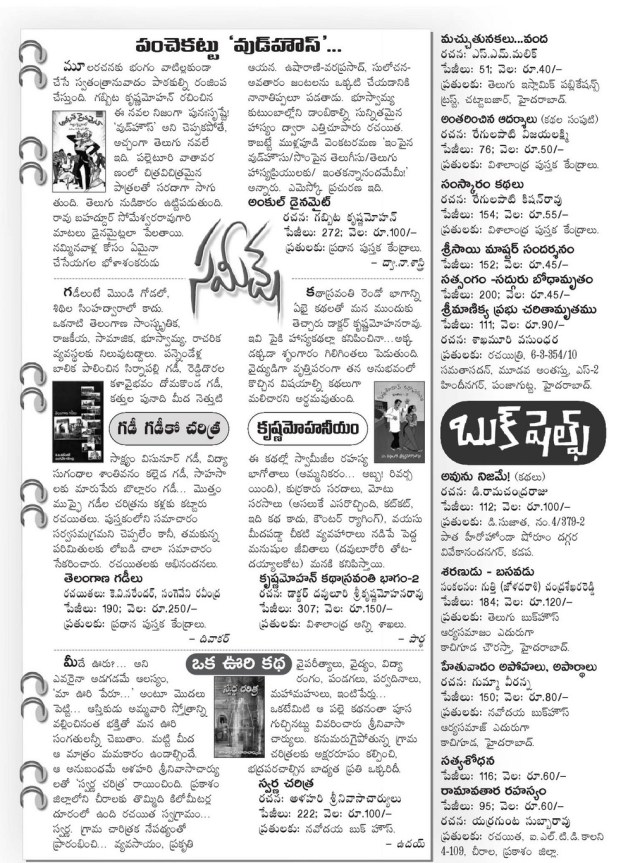 పంచెకట్టు ‘వుడ్‌హౌస్’...
మూలరచనకు భంగం వాటిల్లకుండా
చేసే స్వతంత్రానువాదం పాఠకుల్ని రంజింప
చేస్తుంది. గబ్బిట కృష్ణమోహన్ రచించిన
ఈ నవల నిజంగా పునఃసృష్టే!
‘వుడ్‌హౌస్’ అని చెప్పకపోతే,
అచ్చంగా తెలుగు నవలే
ఇది. పల్లెటూరి వాతావర
ణంలో చిత్రవిచిత్రమైన
పాత్రలతో సరదాగా సాగు
తుంది. తెలుగు నుడికారం ఉట్టిపడుతుంది.
రావు బహద్దూర్ సోమేశ్వరరావుగారి
మాటలు డైనమైట్లలా పేలతాయి.
నమ్మినవాళ్ల కోసం ఏమైనా
చేసేయగల భోళాశంకరుడు
ఆయన. ఉషారాణి-వరప్రసాద్, సులోచన-
అవతారం జంటలను ఒక్కటి చేయడానికి
నానాతిప్పలూ పడతాడు. భూస్వామ్య
కుటుంబాల్లోని డాంబికాల్ని సున్నితమైన
హాస్యం ద్వారా ఎత్తిచూపారు రచయిత.
కాబట్టే ముళ్లపూడి వెంకటరమణ ‘ఇంపైన
వుడ్‌హౌసు/సొంపైన తెలుగీసు/తెలుగు
హాస్యప్రియులకు/ ఇంతకన్నానందమేమీ!’
అన్నారు. ఎమెస్కో ప్రచురణ ఇది.
అంకుల్ డైనమైట్
రచన: గబ్బిట కృష్ణమోహన్
పేజీలు: 272; వెల: రూ.100/–
ప్రతులకు: ప్రధాన పుస్తక కేంద్రాలు.
– ద్వా.నా.శాస్త్రి
సమీక్ష
గడీలంటే మొండి గోడలో,
శిథిల సింహద్వారాలో కాదు.
ఒకనాటి తెలంగాణ సాంస్కృతిక,
రాజకీయ, సామాజిక, భూస్వామ్య, రాచరిక
వ్యవస్థలకు నిలువుటద్దాలు. పన్నెండేళ్ల
బాలిక పాలించిన సిర్నాపల్లి గడీ, రెడ్డిదొరల
కళావైభవం దోమకొండ గడీ,
కత్తుల పునాది మీద నెత్తుటి
గడీ గడీకో చరిత్ర
సాక్ష్యం విసునూర్ గడీ, విద్యా
సుగంధాల శాంతివనం కల్లెడ గడీ, సాహసా
లకు మారుపేరు బొల్లారం గడీ... మొత్తం
ముప్ఫై గడీల చరిత్రను కళ్లకు కట్టారు
రచయితలు. పుస్తకంలోని సమాచారం
సర్వసమగ్రమని చెప్పలేం కానీ, తమకున్న
పరిమితులకు లోబడి చాలా సమాచారం
సేకరించారు. రచయితలకు అభినందనలు.
తెలంగాణ గడీలు
రచయితలు: కె.వి.నరేందర్, సంగెవేని రవీంద్ర
పేజీలు: 190; వెల: రూ.250/–
ప్రతులకు: ప్రధాన పుస్తక కేంద్రాలు.
– దివాకర్
కథాస్రవంతి రెండో భాగాన్ని
ఏభై కథలతో మన ముందుకు
తెచ్చారు డాక్టర్ కృష్ణమోహనరావు.
ఇవి పైకి హాస్యకథల్లా కనిపించినా...అక్క
డక్కడా శృంగారం గిలిగింతలు పెడుతుంది.
వైద్యుడిగా వృత్తిపరంగా తన అనుభవంలో
కొచ్చిన విషయాల్ని కథలుగా
మలిచారని అర్థమవుతుంది.
కృష్ణమోహనీయం
ఈ కథల్లో స్వామీజీల రహస్య
భాగోతాలు (అమ్మనికరం... అబ్బ! రివర్స
యింది), కుర్రకారు సరదాలు, మోటు
సరసాలు (అసలుకే ఎసరొచ్చింది, కట్‌కట్,
ఇది కథ కాదు, కౌంటర్ ర్యాగింగ్), వయసు
మీదపడ్డా చీకటి వ్యవహారాలు నడిపే పెద్ద
మనుషుల జీవితాలు (దవులూరోరి తోట-
దయ్యాలకోట) మనకి కనిపిస్తాయి.
కృష్ణమోహన్ కథాస్రవంతి భాగం-2
రచన: డాక్టర్ దవులూరి శ్రీకృష్ణమోహనరావు
పేజీలు: 307; వెల: రూ.150/–
ప్రతులకు: విశాలాంధ్ర అన్ని శాఖలు.
– పార్థ
ఒక ఊరి కథ
మీదే ఊరు?... అని
ఎవరైనా అడగడమే ఆలస్యం,
‘మా ఊరి పేరూ...’ అంటూ మొదలు
పెట్టి... ఆస్తికుడు అమ్మవారి స్తోత్రాన్ని
వల్లించినంత భక్తితో మన ఊరి
సంగతులన్నీ చెబుతాం. మట్టి మీద
ఆ మాత్రం మమకారం ఉండాల్సిందే.
ఆ అనుబంధమే అళహరి శ్రీనివాసాచార్యు
లతో ‘స్వర్ణ చరిత్ర’ రాయించింది. ప్రకాశం
జిల్లాలోని చీరాలకు తొమ్మిది కిలోమీటర్ల
దూరంలో ఉంది రచయిత స్వగ్రామం...
స్వర్ణ. గ్రామ చారిత్రక నేపథ్యంతో
ప్రారంభించి... వ్యవసాయం, ప్రకృతి
వైపరీత్యాలు, వైద్యం, విద్యా
రంగం, పండగలు, పర్వదినాలు,
మహామహులు, ఇంటిపేర్లు...
ఒకటేమిటి ఆ పల్లె కథనంతా పూస
గుచ్చినట్టు వివరించారు శ్రీనివాసా
చార్యులు. కనుమరుగైపోతున్న గ్రామ
చరిత్రలకు అక్షరరూపం కల్పించి,
భద్రపరచాల్సిన బాధ్యత ప్రతి ఒక్కరిదీ.
స్వర్ణ చరిత్ర
రచన: అళహరి శ్రీనివాసాచార్యులు
పేజీలు: 222; వెల: రూ.100/–
ప్రతులకు: నవోదయ బుక్ హౌస్.
– ఉదయ్
మచ్చుతునకలు...వంద
రచన: ఎస్.ఎమ్.మలిక్
పేజీలు: 51; వెల: రూ.40/–
ప్రతులకు: తెలుగు ఇస్లామిక్ పబ్లికేషన్స్
ట్రస్ట్, చట్టాబజార్, హైదరాబాద్.
అంతరించిన ఆదర్శాలు (కథల సంపుటి)
రచన: రేగులపాటి విజయలక్ష్మి
పేజీలు: 76; వెల: రూ.50/–
ప్రతులకు: విశాలాంధ్ర పుస్తక కేంద్రాలు.
సంస్కారం కథలు
రచన: రేగులపాటి కిషన్‌రావు
పేజీలు: 154; వెల: రూ.55/–
ప్రతులకు: విశాలాంధ్ర పుస్తక కేంద్రాలు.
శ్రీసాయి మాష్టర్ సందర్శనం
పేజీలు: 152; వెల: రూ.45/–
సత్సంగం -సద్గురు బోధామృతం
పేజీలు: 200; వెల: రూ.45/–
శ్రీమాణిక్య ప్రభు చరితామృతము
పేజీలు: 111; వెల: రూ.90/–
రచన: శాఖమూరి వసుంధర
ప్రతులకు: రచయిత్రి, 6-3-354/10
సమతాసదన్, మూడవ అంతస్తు, ఎస్-2
హిందీనగర్, పంజాగుట్ట, హైదరాబాద్.
బుక్ షెల్ఫ్
అవును నిజమే! (కథలు)
రచన: డి.రామచంద్రరాజు
పేజీలు: 112; వెల: రూ.100/–
ప్రతులకు: డి.సుజాత, నం.4/379-2
పాత హీరోహోండా షోరూం దగ్గర
వివేకానందనగర్, కడప.
శరణుడు - బసవడు
సంకలనం: గుత్తి (జోళదరాశి) చంద్రశేఖరరెడ్డి
పేజీలు: 184; వెల: రూ.120/–
ప్రతులకు: తెలుగు బుక్‌హౌస్
ఆర్యసమాజం ఎదురుగా
కాచిగూడ చౌరస్తా, హైదరాబాద్.
హేతువాదం అపోహలు, అపార్థాలు
రచన: గుమ్మా వీరన్న
పేజీలు: 150; వెల: రూ.80/–
ప్రతులకు: నవోదయ బుక్‌హౌస్
ఆర్యసమాజ్ ఎదురుగా
కాచిగూడ, హైదరాబాద్.
సత్యశోధన
పేజీలు: 116; వెల: రూ.60/–
రామావతార రహస్యం
పేజీలు: 95; వెల: రూ.60/–
రచన: యర్రగుంట సుబ్బారావు
ప్రతులకు: రచయిత, ఐ.ఎల్.టి.డి.కాలని
4-109, చీరాల, ప్రకాశం జిల్లా.